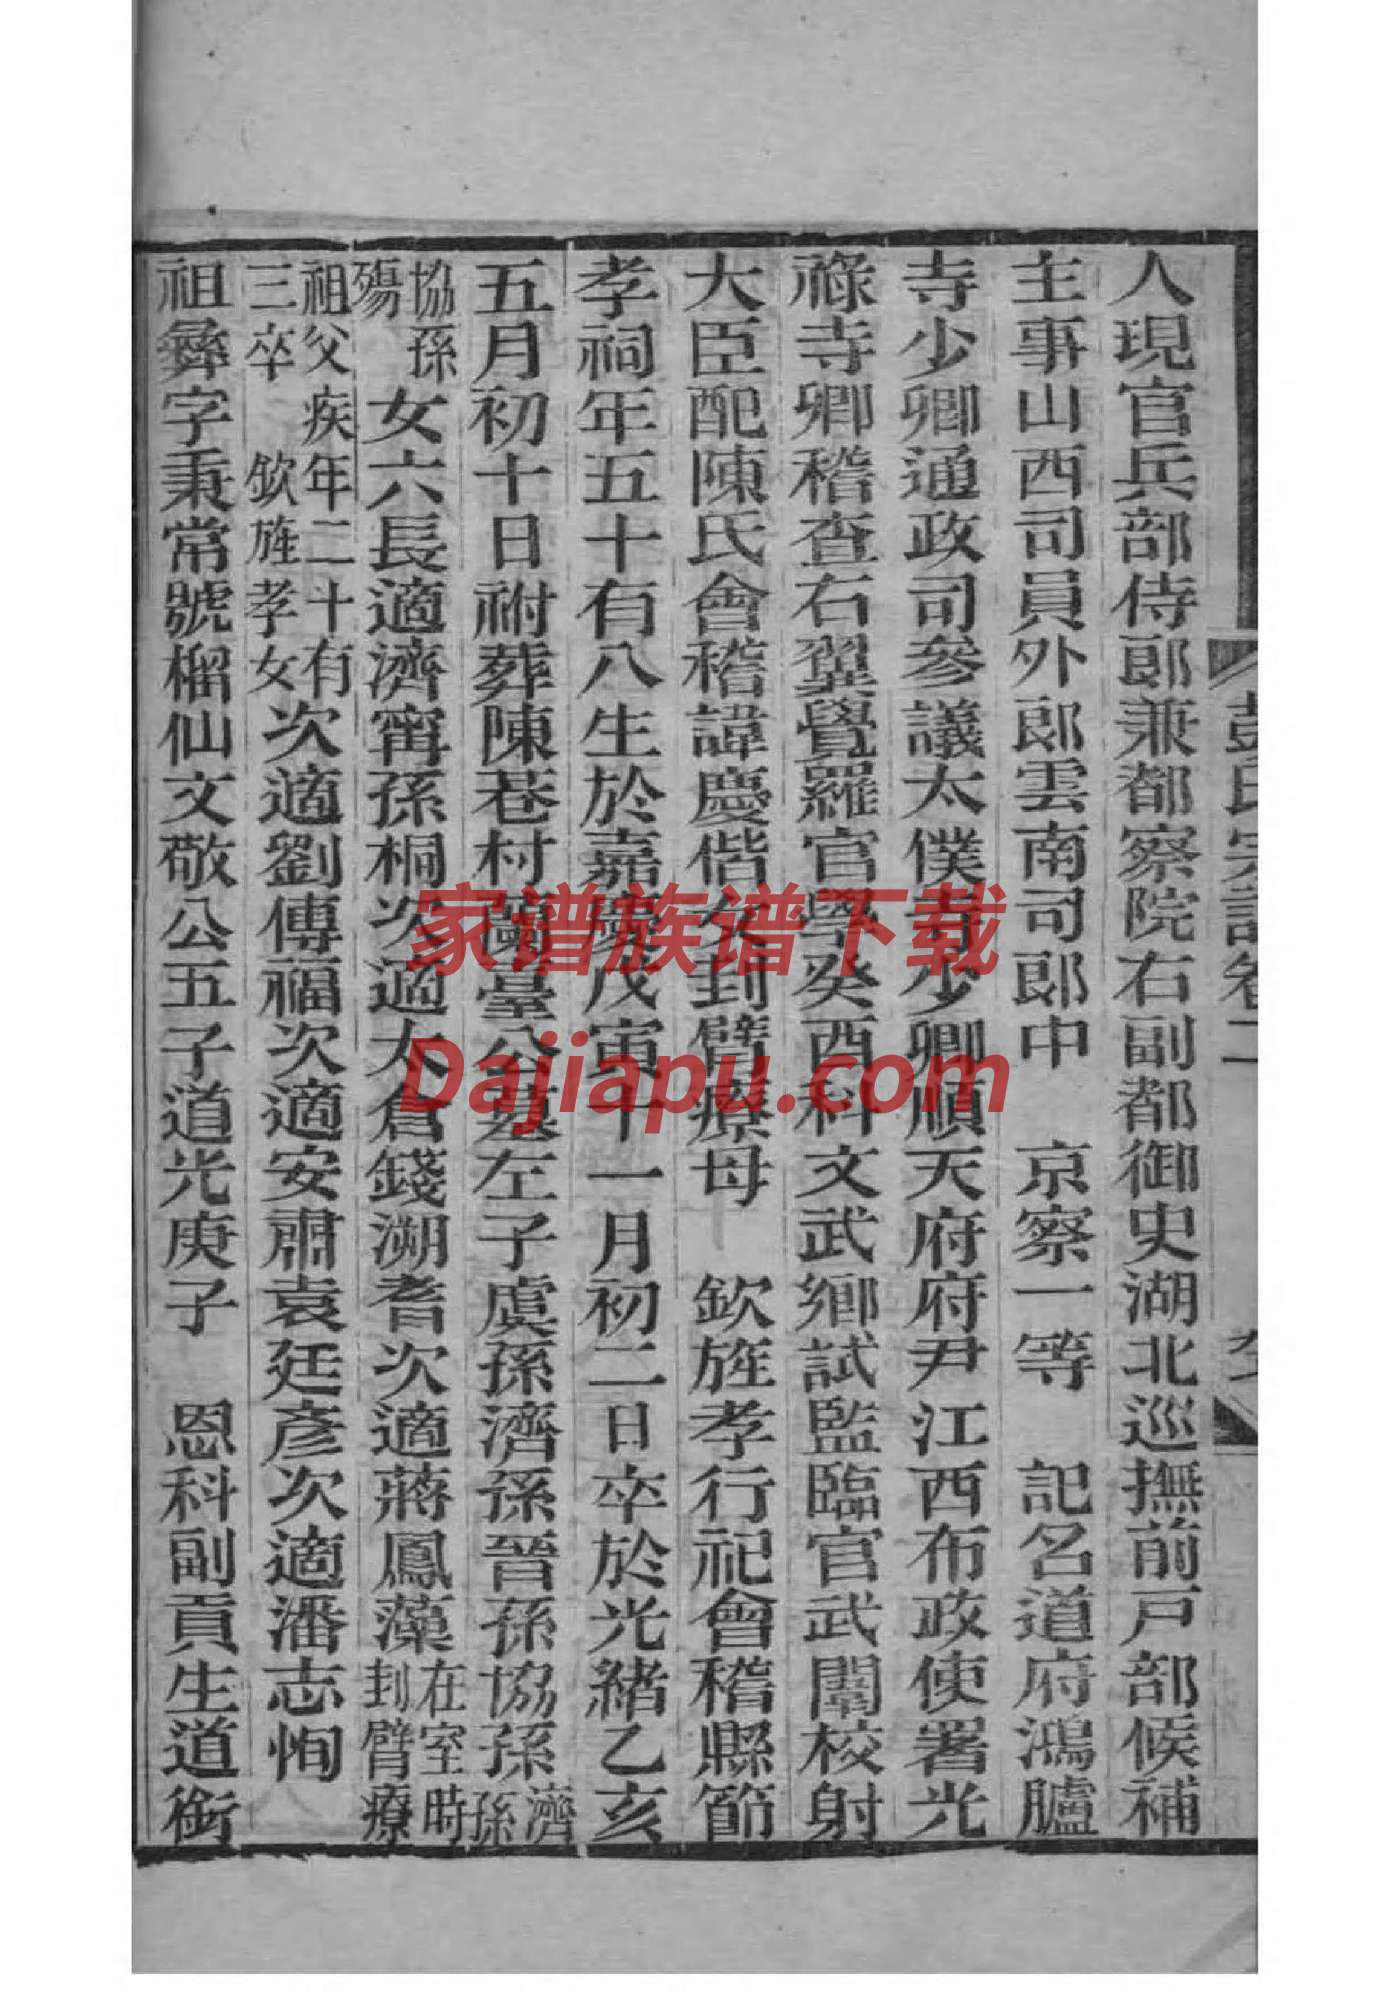 人現官兵部侍郎兼都察院右副都御史湖北巡撫前戸部候補
主事山西司員外郎雲南司郎中　京察一等　記名道府鴻臚
寺少卿通政司參議太僕寺少卿順天府府尹江西布政使署光
祿寺卿稽查右翼覺羅官學癸酉科文武鄉試監臨官武闈校射
大臣配陳氏會稽諱慶偕女封臂療母　欽旌孝行祀會稽縣節
孝祠年五十有八生於嘉慶戊寅十一月初二日卒於光緒乙亥
五月初十日祔葬陳巷村蘭臺公墓左子虞孫濟孫晉孫協孫濟孫
協孫殤女六長適濟甯孫桐次適太倉錢溯耆次適蔣鳳藻在室時刲臂療
祖父疾年二十有三卒　欽旌孝女次適劉傳福次適安肅袁廷彥次適潘志恂
祖彝字秉常號榴仙文敬公五子道光庚子　恩科副貢生道銜
彭氏宗譜卷二
家谱族谱下载
Dajiapu.com